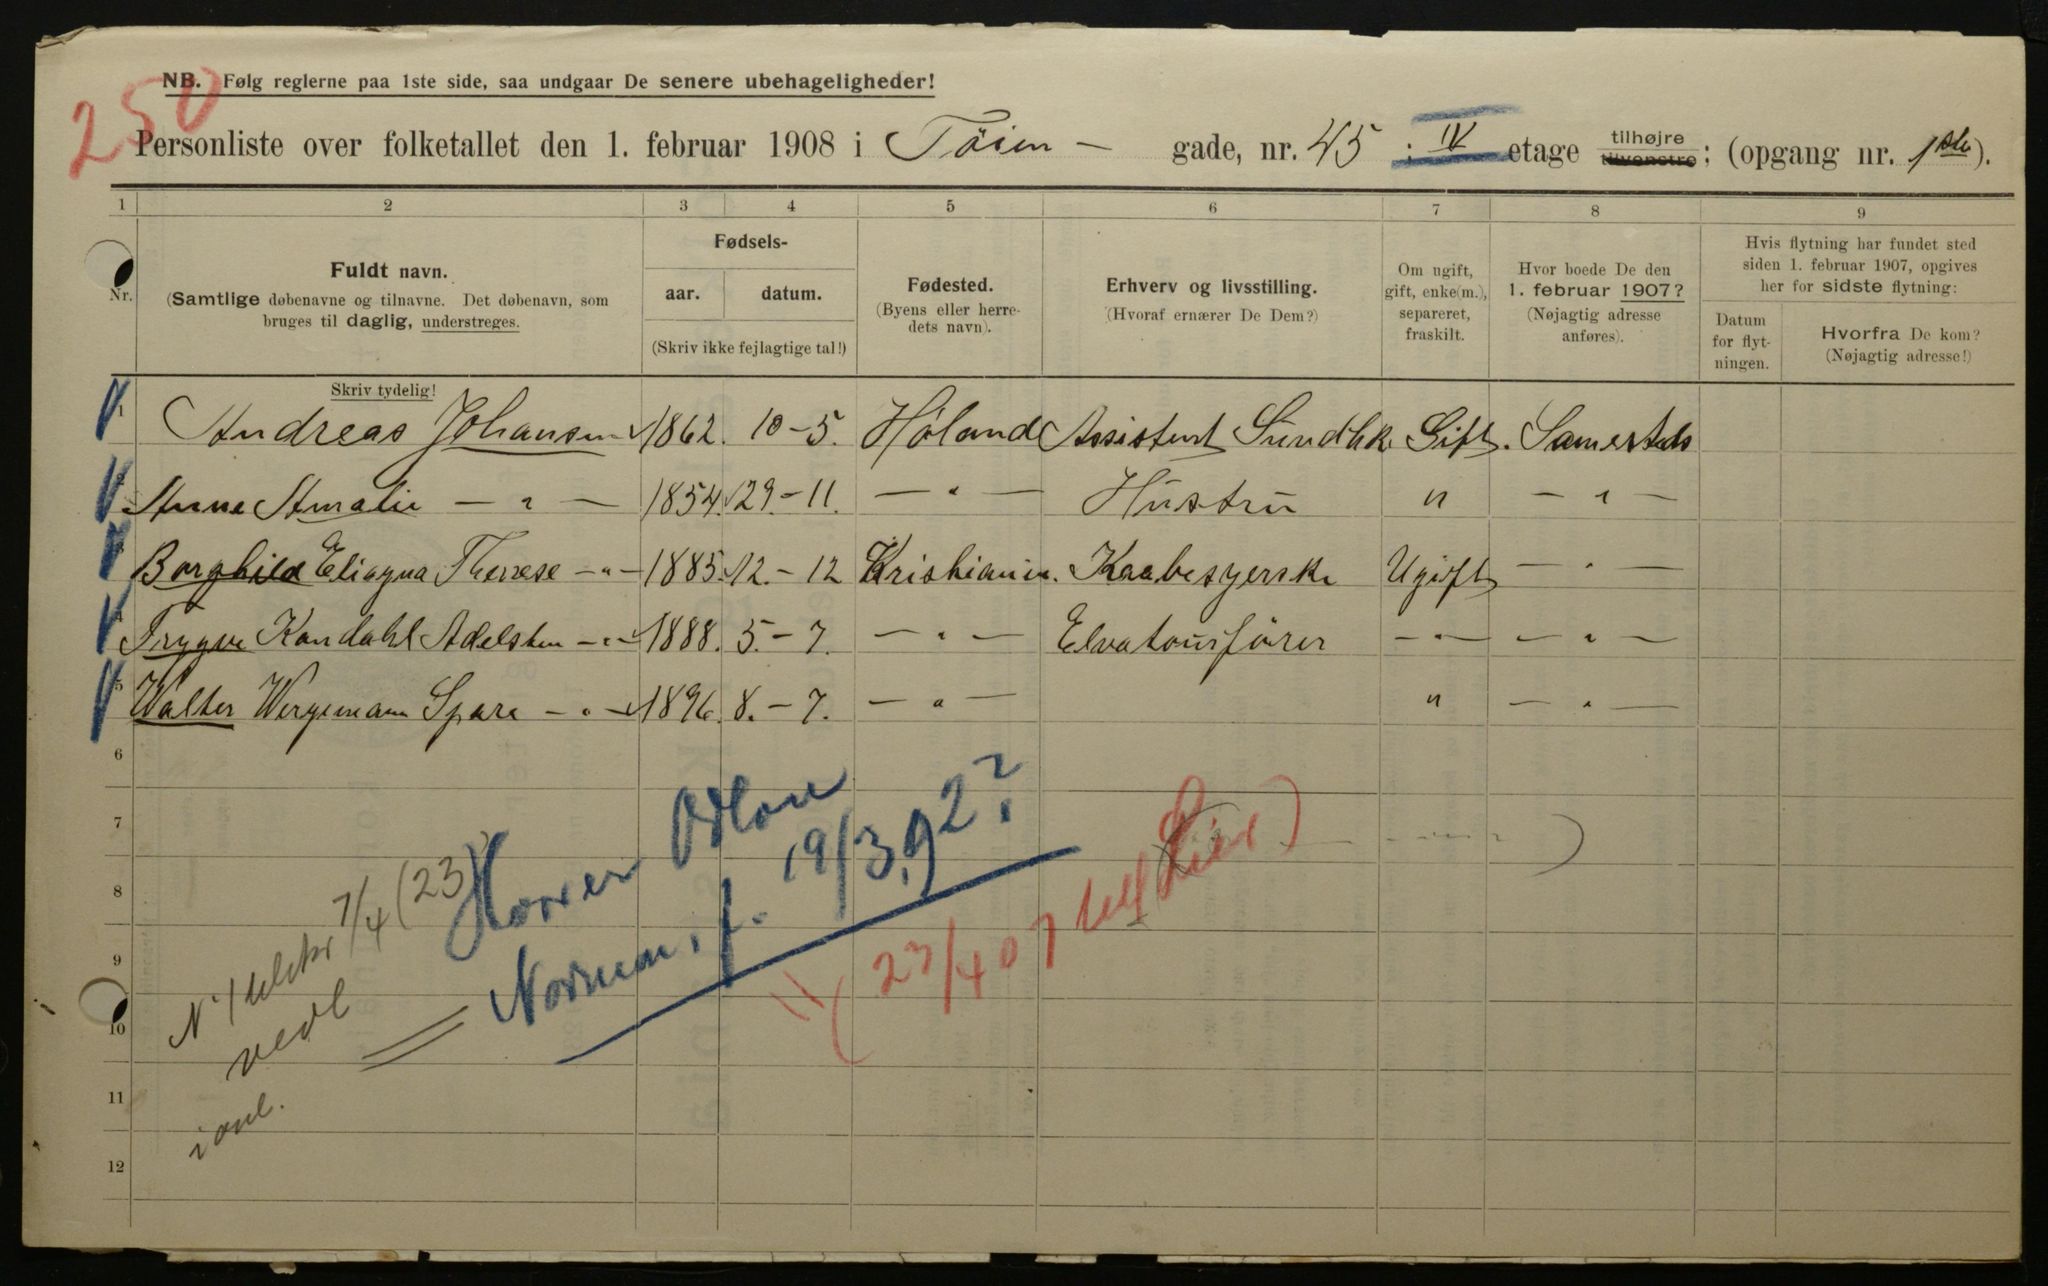 250
NB. Følg reglerne paa 1ste side, saa undgaar De senere ubehageligheder!
Personliste over folketallet den 1. februar 1908 i Tøien - gade, nr. 45 : IV etage tilhøjre tilvenstre; (opgang nr. 1ste).
1 2 3 4 5 6 7 8 9
Nr.
Fuldt navn.
(Samtlige døbenavne og tilnavne. Det døbenavn, som
bruges til daglig, understreges.
Skriv tydelig!
Fødsels-
aar. datum.
(Skriv ikke fejlagtige tal!)
Fødested.
(Byens eller herre-
dets navn).
Erhverv og livsstilling.
(Hvoraf ernærer De Dem?)
Om ugift,
gift, enke(m.),
separeret,
fraskilt.
Hvor boede De den
1. februar 1907?
(Nøjagtig adresse
anføres).
Hvis flytning har fundet sted
siden 1. februar 1907, opgives
her for sidste flytning:
Datum
for flyt-
ningen.
Hvorfra De kom?
(Nøjagtig adresse!)
1 Andreas Johansen 1862. 10-5. Høland Assistent Sundhk. Gift. Samesteds
2 Anne Amalie — " — 1854. 29.-11. — " — Hustru " — " —
3 Borghild Eliagna Therese — " — 1885. 12.-12 Kristiania. Kaabesyerske Ugift — " —
4 Trygve Kandahl Adelsten — " — 1888. 5.-7. — " — Elvatourfører — " — — " —
5 Walter Wergemann Spare — " — 1896. 8.-7. — " — " — " —
6
7
8
9
10
11
12
Hvor er Odlou
Norman, f. 19/3.92?
(23/4 07 till Lier)
7/4 (23)
vedl
i anl.